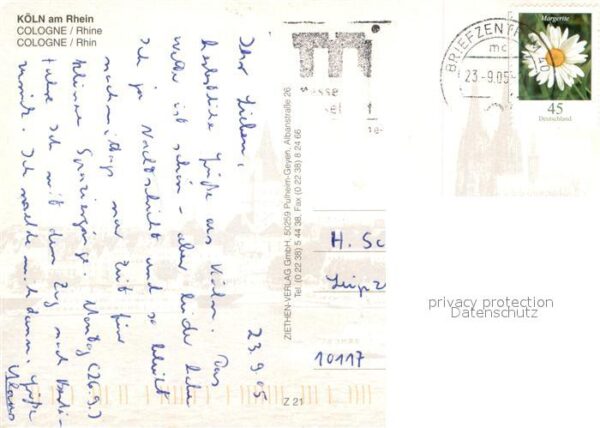 KÖLN am Rhein
COLOGNE / Rhine
COLOGNE / Rhin
23.9.05
Ihr Lieben,
herbstliche Grüße aus Köln. Das
Wetter ist schön - aber leider habe
ich ja Nachtschicht und so bleibt
nachmittags nur Zeit für
kleine Spaziergänge. Montag (26.9.)
fahre ich mit dem Zug nach Berlin
zurück. Ich melde mich dann. Grüße
Klaus
ZIETHEN-VERLAG GmbH, 50259 Pulheim-Geyen, Albanstraße 26
Tel. (0 22 38) 5 44 38, Fax (0 22 38) 8 24 66
Z 21
BRIEFZENTRUM 40
mc
23-9.05
Margerite
45
Deutschland
H. Sc
Leipz
10117
privacy protection
Datenschutz